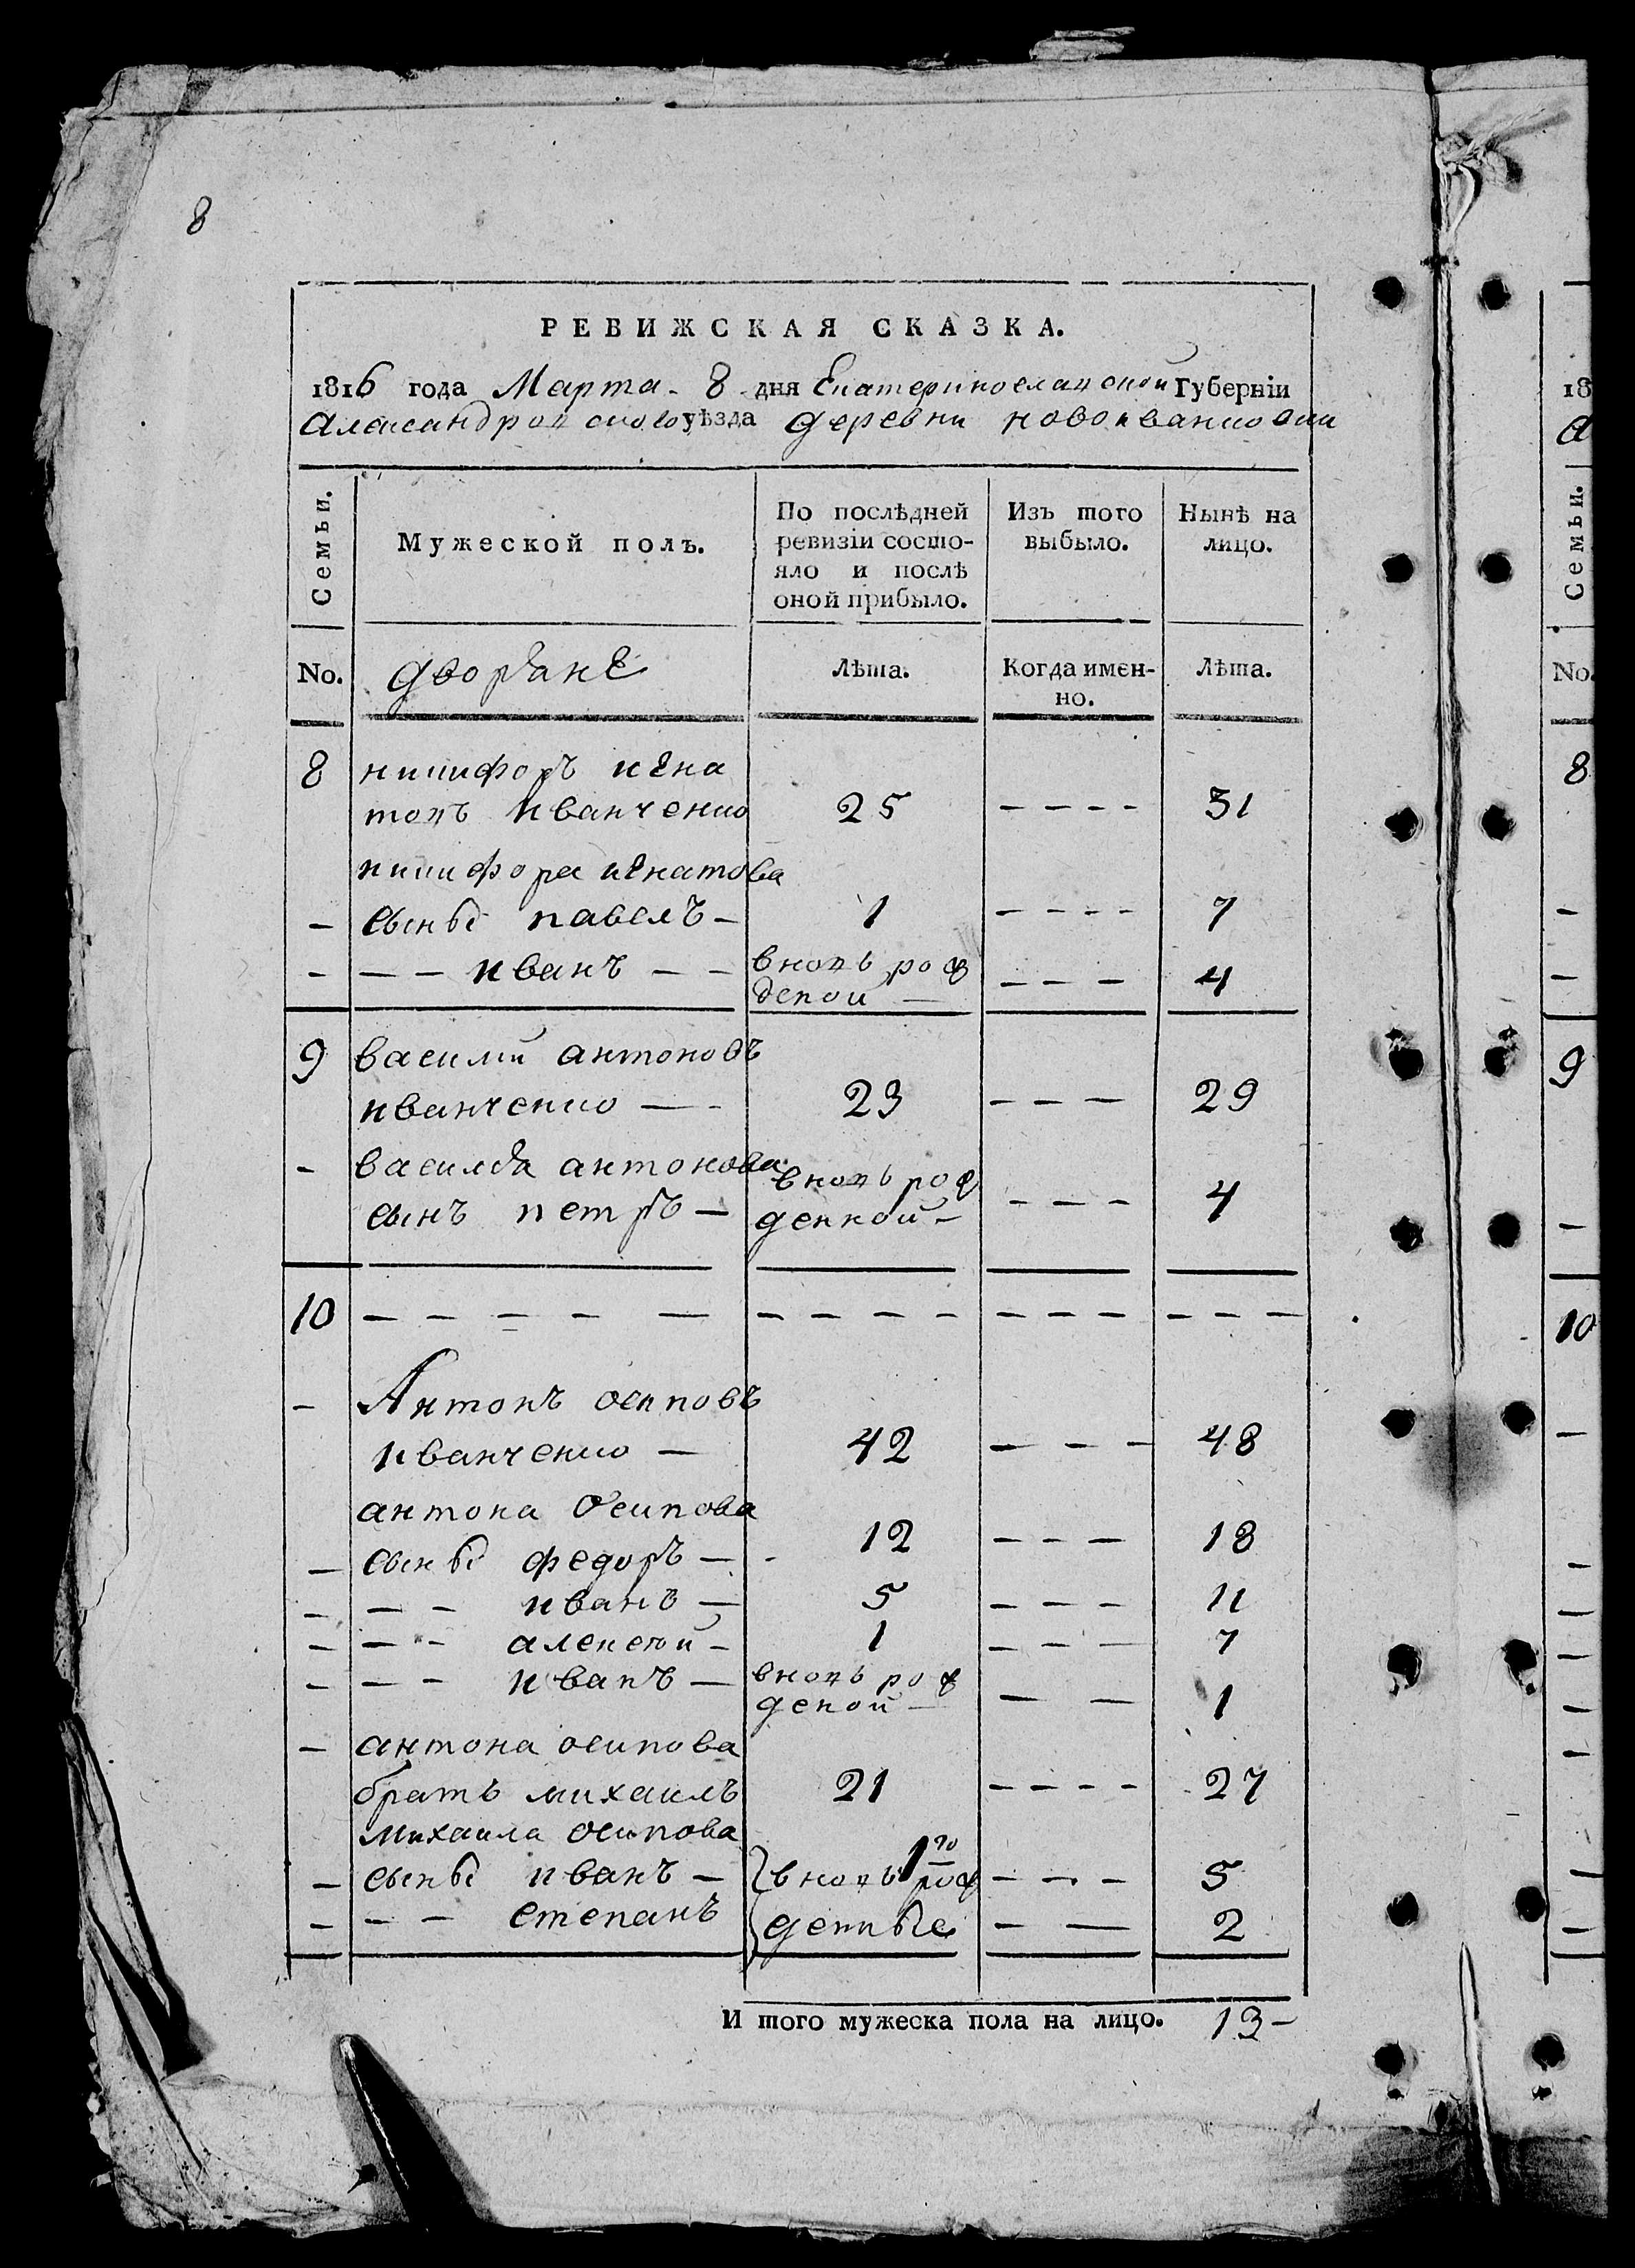 8
РЕВИЖСКАЯ СКАЗКА.
1816 года Марта - 8 дня Екатеринославской Губерніи
Александровского уѣзда деревни новоивановки
Семьи.
Мужеской полъ.
По послѣдней ревизіи состо-
яло и послѣ
оной прибыло.
Изъ того выбыло.
Нынѣ на лицо.
No. дворѣане Лѣта. Когда имен-
но. Лѣта.
8 никифоръ игна
товъ иванченко 25 - - - - 31
никифора игнатова
- сыны павелъ - 1 - - - - 7
- - - иванъ - - вновь рож
деной - - - - 4
9 василий антоновъ
иванченко - - 23 - - - 29
- василѣа антонова вновь рож
сынъ петръ - денной - - - - 4
10 - - - - - - - - - - - - - - -
- Антонъ осиповъ
иванченко - 42 - - - 48
антона Осипова
- сыны федоръ - - 12 - - - 18
- - - иванъ - 5 - - - 11
- - - алексѣй - 1 - - - 7
- - - иванъ - вновь рож
деной - - - 1
- антона осипова
братъ михаилъ 21 - - - - 27
Михаила осипова
- сыны иванъ - вновь рож - - - 5
- - - степанъ денные - - 2
И того мужеска пола на лицо. 13 -
18
А
Семьи.
No.
8
-
-
9
-
10
-
-
-
-
-
-
-
-